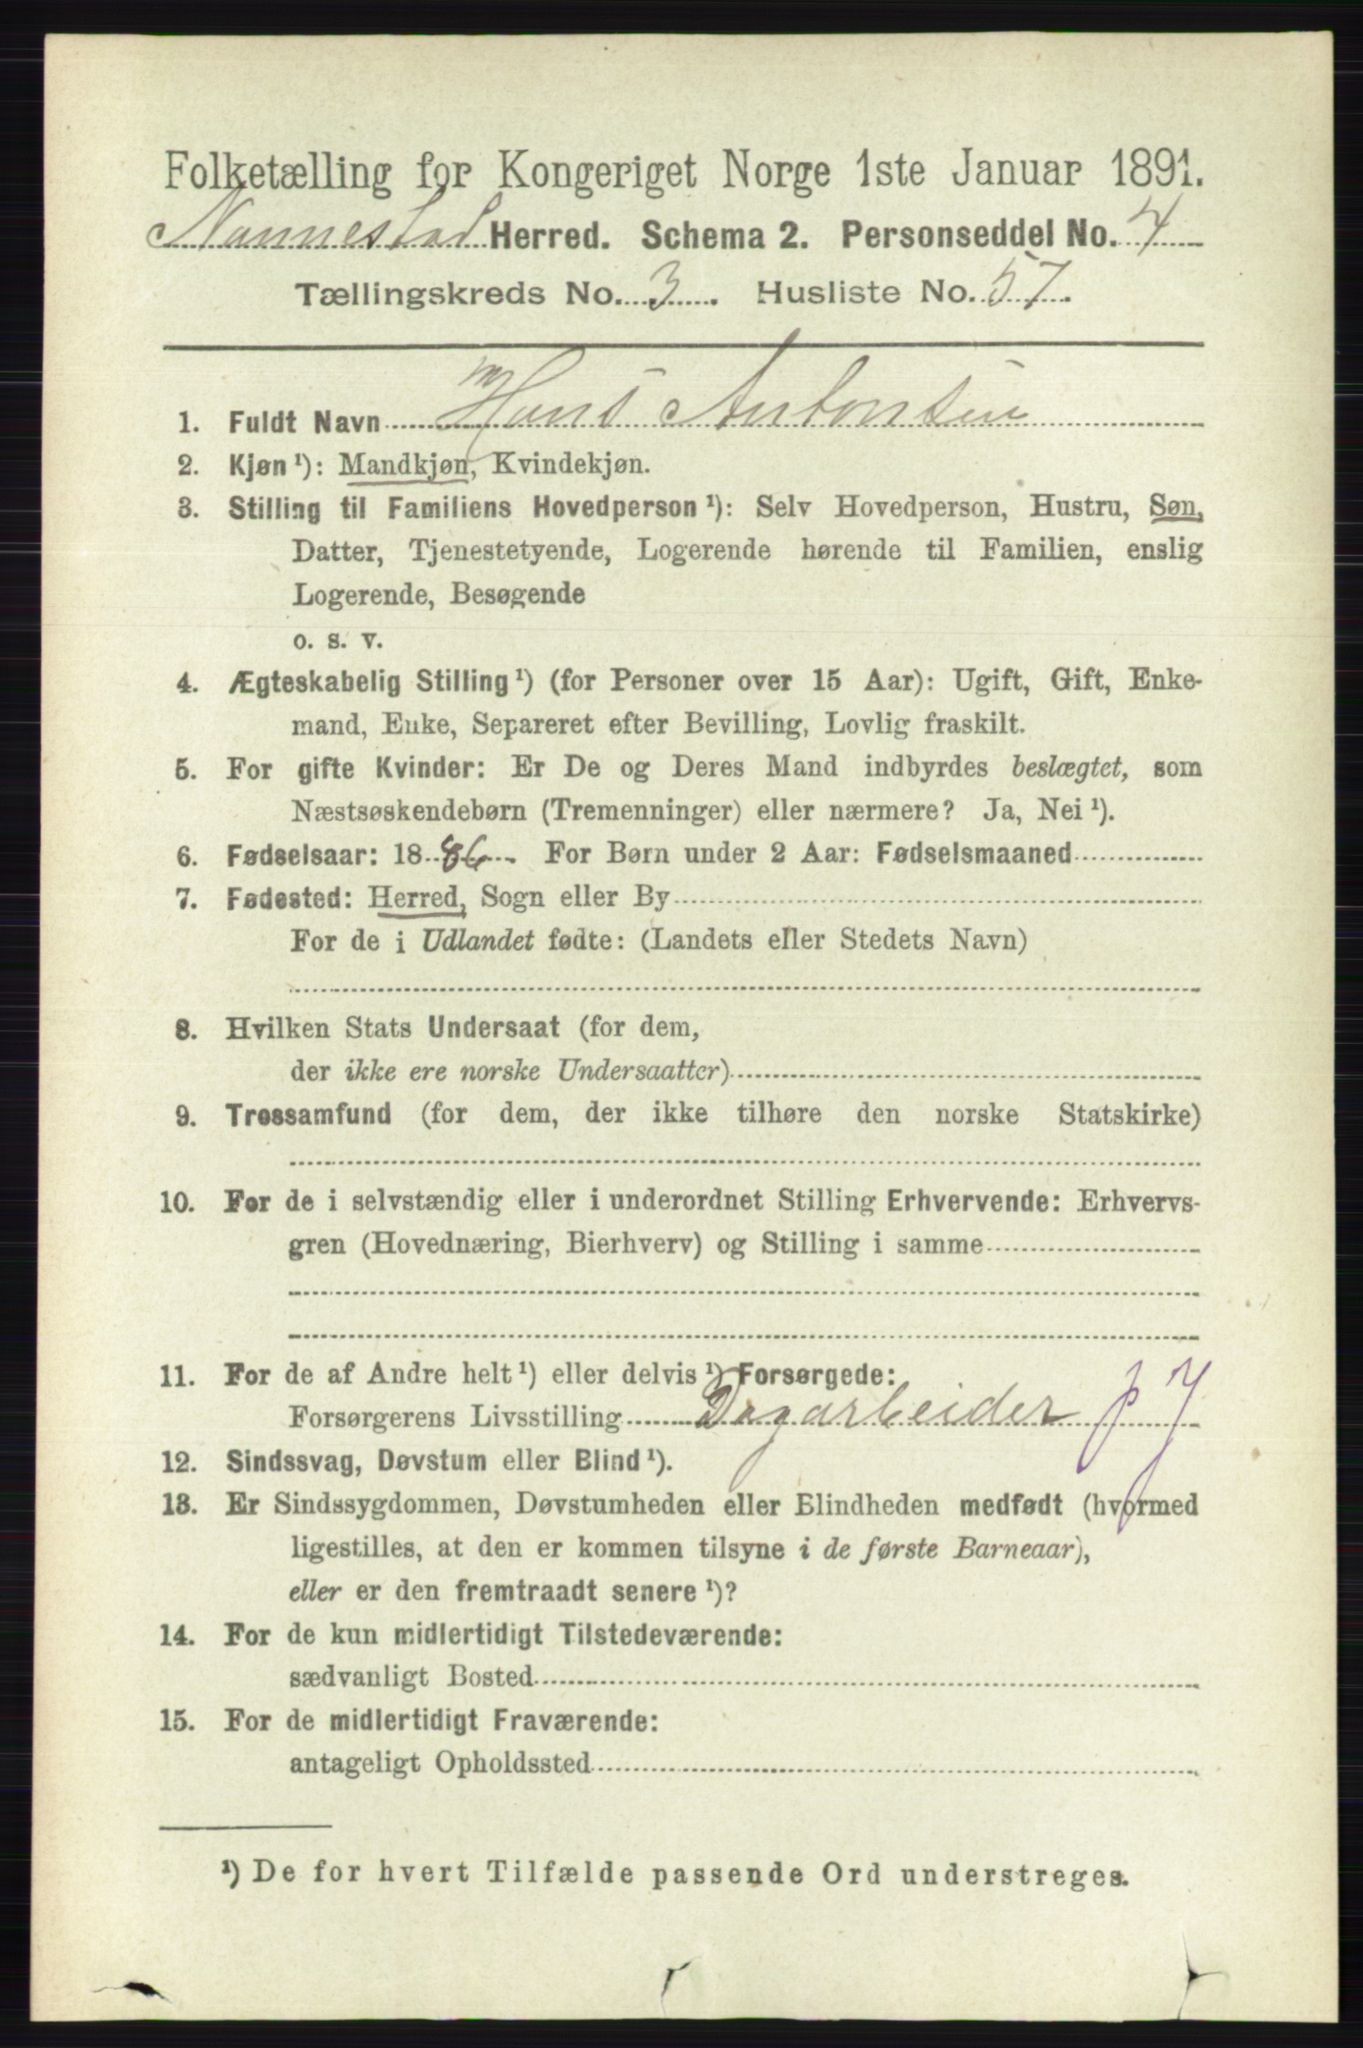 Folketælling for Kongeriget Norge 1ste Januar 1891.
Nannestad Herred. Schema 2. Personseddel No. 4
Tællingskreds No. 3. Husliste No. 57.
1. Fuldt Navn Hans Antonsen
2. Kjøn¹): Mandkjøn, Kvindekjøn.
3. Stilling til Familiens Hovedperson¹): Selv Hovedperson, Hustru, Søn,
Datter, Tjenestetyende, Logerende hørende til Familien, enslig
Logerende, Besøgende
o. s. v.
4. Ægteskabelig Stilling¹) (for Personer over 15 Aar): Ugift, Gift, Enke-
mand, Enke, Separeret efter Bevilling, Lovlig fraskilt.
5. For gifte Kvinder: Er De og Deres Mand indbyrdes beslægtet, som
Næstsøskendebørn (Tremenninger) eller nærmere? Ja, Nei¹).
6. Fødselsaar: 1886. For Børn under 2 Aar: Fødselsmaaned
7. Fødested: Herred, Sogn eller By
For de i Udlandet fødte: (Landets eller Stedets Navn)
8. Hvilken Stats Undersaat (for dem,
der ikke ere norske Undersaatter)
9. Trossamfund (for dem, der ikke tilhøre den norske Statskirke)
10. For de i selvstændig eller i underordnet Stilling Erhvervende: Erhvervs-
gren (Hovednæring, Bierhverv) og Stilling i samme
11. For de af Andre helt¹) eller delvis¹) Forsørgede:
Forsørgerens Livsstilling Dagarbeider
12. Sindssvag, Døvstum eller Blind¹).
13. Er Sindssygdommen, Døvstumheden eller Blindheden medfødt (hvormed
ligestilles, at den er kommen tilsyne i de første Barneaar),
eller er den fremtraadt senere¹)?
14. For de kun midlertidigt Tilstedeværende:
sædvanligt Bosted
15. For de midlertidigt Fraværende:
antageligt Opholdssted
¹) De for hvert Tilfælde passende Ord understreges.